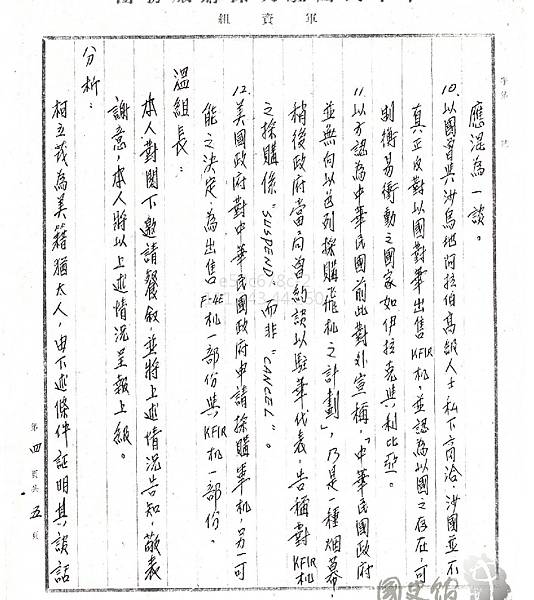 軍資組
應混為一談。
10.以國曾與沙烏地阿拉伯高級人士私下商洽,沙國並不
真正反對以國對華出售KFIR机,並認為以國之存在可
制衡易衝動之國家如伊拉克與利比亞。
11.以方認為中華民國前此對外宣稱,「中華民國政府
並無向以色列採購飛机之計劃」,乃是一種烟幕,
稍後政府當局曾約談以駐華代表,告稱對KFIR机
之採購係"SUSPEND"而非"CANCEL"。
12.美國政府對中華民國政府申請採購軍机,另一可
能之決定為出售F-4E机一部份與KFIR机一部份。
溫組長:
本人對閣下邀請餐敘,並將上述情況告知,敬表
謝意,本人將以上述情況呈報上級。
分析:
柯立茂為美籍猶太人,由下述條件証明其談話
第四頁共五頁
國史館